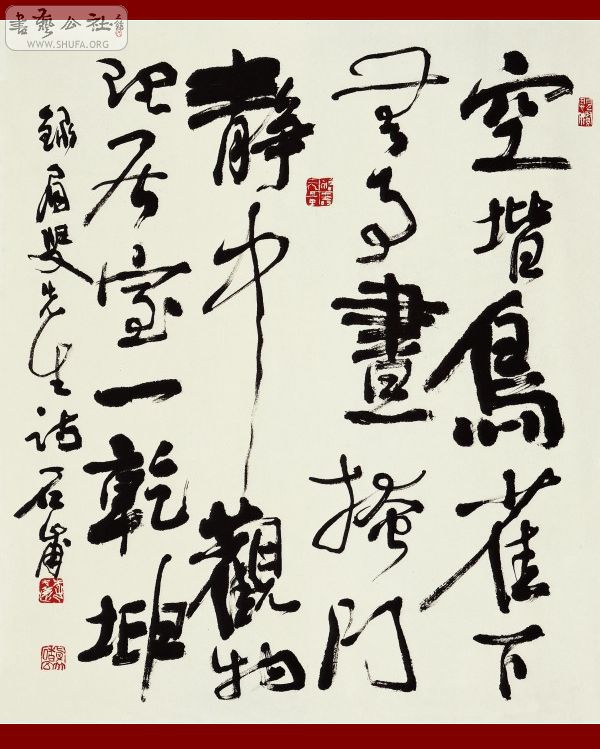 書藝公社
WWW.SHUFA.ORG
空堦鳥雀下
無事晝掩門
靜中觀物
理居室一乾坤
錄眉叟先生诗石甫